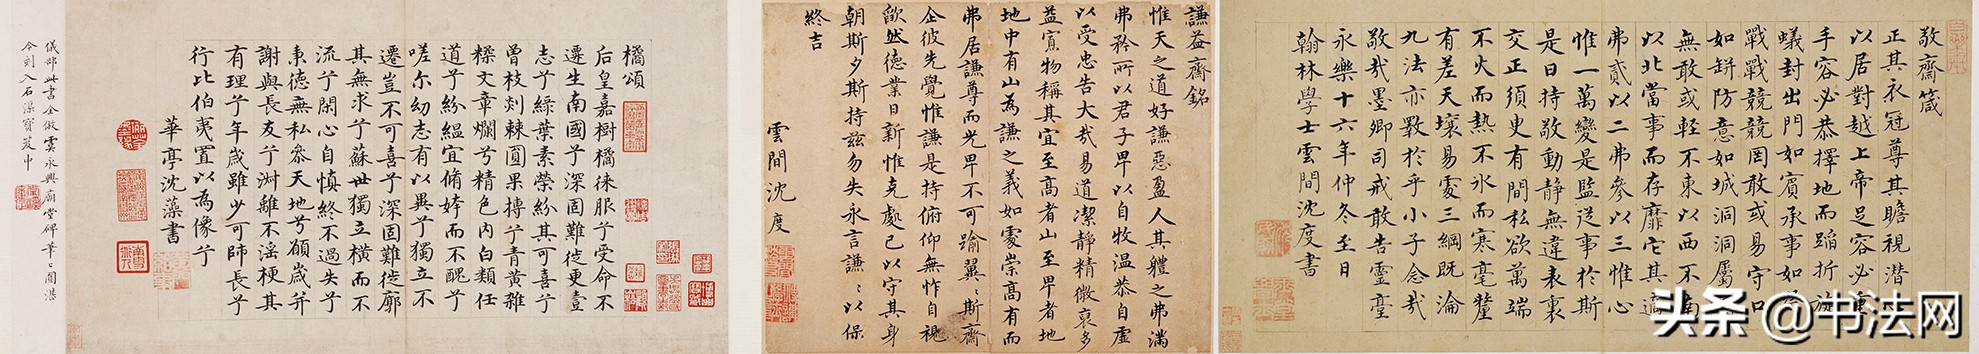 橘頌
后皇嘉樹橘徠服兮受命不
遷生南國兮深固難徙更壹
志兮綠葉素榮紛其可喜兮
曾枝剡棘圓果摶兮青黃雜
糅文章爛兮精色內白類任
道兮紛縕宜脩姱而不醜兮
嗟尔幼志有以異兮獨立不
遷豈不可喜兮深固難徙廓
其無求兮蘇世獨立橫而不
流兮閉心自慎終不過失兮
秉德無私參天地兮願歲并
謝與長友兮淑離不淫梗其
有理兮年歲雖少可師長兮
行比伯夷置以為像兮
華亭沈藻書
儀部此書全倣虞永興廟堂碑筆〻圓湛
今刻入石渠寶笈中
謙益齋銘
惟天之道好謙惡盈人其體之弗滿
弗矜所以君子卑以自牧溫恭自虛
以受忠告大哉易道潔靜精微裒多
益寡物稱其宜至高者山至卑者地
地中有山為謙之義如處崇高有而
弗居謙尊而光卑不可踰翼〻斯齋
企彼先覺惟謙是持俯仰無怍自視
欿然德業日新惟克處已以守其身
朝斯夕斯持茲勿失永言謙〻以保
終吉
雲間沈度
敬齋箴
正其衣冠尊其瞻視潛
以居對越上帝足容必重
手容必恭擇地而蹈折旋
蟻封出門如賓承事如
戰戰兢兢罔敢或易守口
如缾防意如城洞洞屬
無敢或輕不東以西不南
以北當事而存靡它其適
弗貳以二弗參以三惟心
惟一萬變是監從事於斯
是曰持敬動靜無違表裏
交正須臾有間私欲萬端
不火而熱不冰而寒毫釐
有差天壤易處三綱既淪
九法亦斁於乎小子念哉
敬哉墨卿司戒敢告靈臺
永樂十六年仲冬至日
翰林學士雲間沈度書
头条@书法网